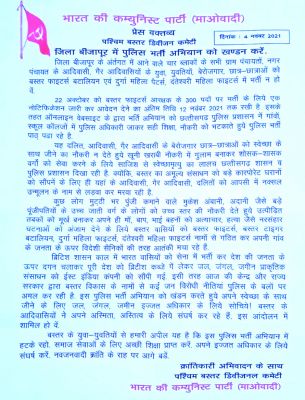 भारत की कम्युनिस्ट पार्टी (माओवादी)
प्रेस वक्तव्य
पश्चिम बस्तर डिवीजनल कमेटी
दिनांक : 4 नवम्बर 2021
जिला बीजापूर में पुलिस भर्ती अभियान को खण्डन करें.
जिला बीजापूर के अंतगर्त में आने वाले चार ब्लाकों के सभी ग्राम पंचायतों, नगर
पंचायत के आदिवासी, गैर आदिवासियों के युवक, युवतियों, बेरोजगार, छात्र-छात्राओं को
बस्तर फाइटर्स बटालियन एवं दुर्गा महिला फाइटर्स, दंतेश्वरी महिला फाइटर्स में भर्ती न हो
22 अक्टोबर को बस्तर फाइटर्स आरक्षक के 300 पदों पर भर्ती के लिए एक
नोटिफिकेशन जारी कर आवेदन देने का अंतिम तिथि 12 नवंबर 2021 तक रखी है. इसके
तहत ऑनलाइन वेबसाइट के द्वारा भर्ती अभियान को छत्तीसगढ़ पुलिस प्रशासन में गांवों,
स्कूल कॉलेजों में पुलिस अधिकारी जाकर सही शिक्षा, नौकरी को भटकाते हुये पुलिस भर्ती
पाठ पढ़ा रहे है.
यह दलित, आदिवासी, गैर आदिवासी के बेरोजगार छात्र-छात्राओं को स्वेच्छा के
साथ जीने का नौकरी न देते हुये खुनी खराबी नौकरी में गुलाम बनाकर शोसक-शासक
वर्गों को सेवा करने के लिये साजिश से
पुलिस प्रशासन दिखा रही है. क्योंकि, बस्तर का अमूल्य संसाधन को बड़े कारपोरेट घरानों
को सौंपने के लिए ही यहां के आदिवासी, गैर आदिवासी, दलितों को आपसी में नक्सल
उन्मूलन के नाम से लड़वा कर मरवा रही है.
कुछ लोग मुठ्ठी भर पूंजी कमाने वाले मुकेश अंबानी, अदानी जैसे बड़े
पूंजीपतियों के उच्च जाती वर्ग के लोगों को उच्च स्तर की नौकरी देते हुये उत्पीड़ित
तबकों को मूर्ख बनाकर अपने ही मां, बाप, भाई बहनों को अत्याचार, हत्या जैसे नरसंहार
घटनाओं को अंजाम देने के लिये बस्तर वासियों को बस्तर फाइटर्स, बस्तर टाइगर
बटालियन, दुर्गा महिला फाइटर्स, दंतेश्वरी महिला फाइटर्स नामों से गठित कर अपनी गांव
के जनता के ऊपर विदेशी सैनिकों की तरह आतंकी मचा रहे हैं.
ब्रिटिश शासन काल में भारत वासियों को सेना में भर्ती कर देश की जनता के
ऊपर दमन चलाकर पूरी देश को ब्रिटीश कब्जे में लेकर जल, जंगल, जमीन प्राकृतिक
संसाधन को ईस्ट इंडिया कंपनी को सौंपी गई. इसी तरह आज की केन्द्र और राज्य
सरकार द्वारा बस्तर विकास के नामों से कई जन विरोधी नीतियां पुलिस के बलों पर
अमल कर रही है. इस पुलिस भर्ती अभियान को खंडन करते हुये अपने स्वेच्छा के साथ
जीने के लिए जल, जंगल, जमीन इज्जत अधिकार के लिये सोचिये! बस्तर के
आदिवासियों ने अपने अस्मिता, अस्तित्व के लिये संघर्ष कर रहे हैं. इस आन्दोलन में
शामिल हो वें.
बस्तर के युवा-युवतियों से हमारी अपील यह है कि इस पुलिस भर्ती अभियान में
हटके रहो. समाज सेवाओं के लिए अच्छी शिक्षा प्राप्त करें. अपने इज्जत अधिकार के लिये
संघर्ष करें. नवजनवादी क्रांति के राह पर आगे बढ़ें.
क्रांतिकारी अभिवादन के साथ
पश्चिम बस्तर डिवीजनल कमेटी
भारत की कम्युनिस्ट पार्टी (माओवादी)